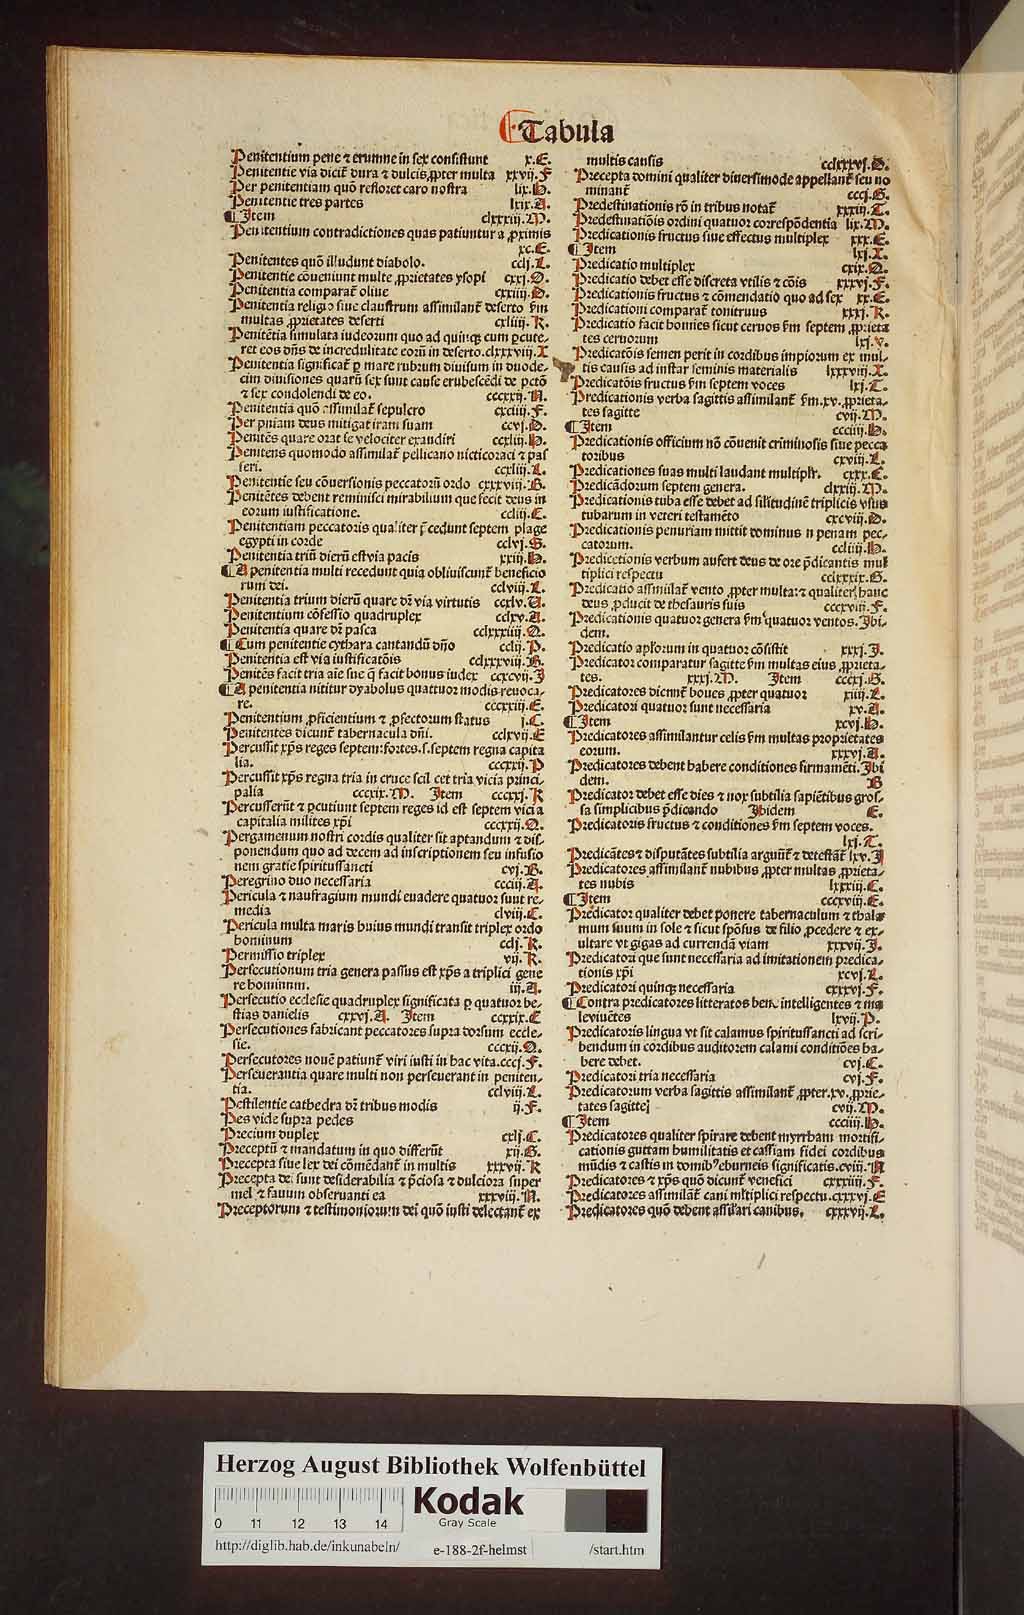 Tabula
Penitentium pene ⁊ erumne in sex consistunt x.E.
Penitentie via dicit̃ dura ⁊ dulcis ꝓpter multa xxvij.F
Per penitentiam quõ refloret caro nostra lix.H.
Penitentie tres partes lxix.A.
¶ Item clxxxiij.M.
Penitentium contradictiones quas patiuntur a ꝓximis
xc.E.
Penitentes quõ illudunt diabolo. cclj.L.
Penitentie cõueniunt multe ꝓprietates ysopi cxxj.O.
Penitentia comparat̃ oliue cxxiiij.D.
Penitentia religio siue claustrum assimilant̃ deserto ẜm
multas ꝓprietates deserti cxliiij.K.
Penitẽtia simulata iudeorum quo ad quinqꝫ cum ꝑcute-
ret eos dñs de incredulitate eorũ in deserto.clxxxviij.X
Penitentia significat̃ ꝑ mare rubrum diuisum in duode-
cim diuisiones quarũ sex sunt cause erubescẽdi de pctõ
⁊ sex condolendi de eo. ccccxij.N.
Penitentia quõ assimilat̃ sepulcro cxciiij.F.
Per pniam deus mitigat iram suam ccvj.D.
Penitẽs quare orat se velociter exaudiri ccxliij.H.
Penitens quomodo assimilat̃ pellicano nicticoraci ⁊ pas
seri. ccxliij.L.
Penitentie seu cõuersionis peccatorũ ordo cxxxviij.B.
Penitẽtes debent reminisci mirabilium que fecit deus in
eorum iustificatione. ccliij.C.
Penitentiam peccatoris qualiter p̃cedunt septem plage
egypti in corde cclvj.S.
Penitentia triũ dierũ est via pacis xxiij.H.
¶ A penitentia multi recedunt quia obliuiscunt̃ beneficio
rum dei. cclviij.L.
Penitentia trium dierũ quare dr̃ via virtutis ccxlv.U.
Penitentium cõfessio quadruplex cclxv.A.
Penitentia quare dr̃ pasca cclxxxiiij.Q.
¶ Cum penitentie cythara cantandũ dño cclij.P.
Penitentia est via iustificatõis cclxxxviij.B.
Penitẽs facit tria aĩe sue q̃ facit bonus iudex ccxcvij.I
¶ A penitentia nititur dyabolus quattuor modis reuoca-
re. cccxxiij.E.
Penitentium ꝓficientium ⁊ ꝑfectorum status j.C.
Penitentes dicunt̃ tabernacula dñi. cclxvij.E
Percussit xp̃s reges septem:fortes.s.septem regna capita
lia. cccxxij.P
Percussit xp̃s regna tria in cruce scilicet tria vicia princi-
palia cccxix.M. Item cccxxj.K
Percusserũt ⁊ ꝑcutiunt septem reges id est septem vicia
capitalia milites xp̃i cccxxij.Q.
Pergamenum nostri cordis qualiter sit aptandum ⁊ dis-
ponendum quo ad decem ad inscriptionem seu infusio
nem gratie spiritussancti cvj.B.
Peregrino duo necessaria ccciij.A.
Pericula ⁊ naufragium mundi euadere quatuor sunt re-
media clviij.C.
Pericula multa maris huius mundi transit triplex ordo
hominum cclj.K.
Permissio triplex vij.K.
Persecutionum tria genera passus est xp̃s a triplici gene
re hominum. iij.A.
Persecutio ecclesie quadruplex significata ꝑ quatuor be-
stias danielis cxxvj.A. Item ccxxix.C
Persecutiones fabricant peccatores supra dorsum eccle-
sie. cccxij.O.
Persecutores nouẽ patiunt̃ viri iusti in hac vita.cccj.F.
Perseuerantia quare multi non perseuerant in peniten-
tia. cclviij.L.
Pestilentie cathedra dr̃ tribus modis ij.F.
Pes vide supra pedes
Precium duplex cxlj.C.
Preceptũ ⁊ mandatum in quo differũt xij.G.
Precepta siue lex dei cõmẽdant̃ in multis xxxvij.K
Precepta dei sunt desiderabilia ⁊ p̃ciosa ⁊ dulciora super
mel ⁊ fauum obseruanti ea xxxviij.N.
Preceptorum ⁊ testimoniorum dei quõ iusti delectant̃ ex
multis causis cclxxxvj.D.
Precepta domini qualiter diuersimode appellant̃ seu no
minant̃ cccj.G.
Predestinationis rõ in tribus notat̃ xxxiij.T.
Predestinatiõis ordini quatuor correspõdentia lix.M.
Predicationis fructus siue effectus multiplex xxx.E.
¶ Item lxj.X.
Predicatio multiplex cxix.Q.
Predicatio debet esse discreta vtilis ⁊ cõis xxxvj.F.
Predicationis fructus ⁊ cõmendatio quo ad sex xx.E.
Predicationi comparat̃ tonitruus xxxj.K.
Predicatio facit homines sicut ceruos ẜm septem ꝓprieta
tes ceruorum lxj.v.
Predicatõis semen perit in cordibus impiorum ex mul-
tis causis ad instar seminis materialis lxxxviij.X.
Predicatõis fructus ẜm septem voces lxj.T.
Predicationis verba sagittis assimilant̃ ẜm.xv.ꝓprieta-
tes sagitte cvij.M.
¶ Item ccciiij.H.
Predicationis officium nõ cõuenit criminosis siue pecca
toribus cxviij.L.
Predicationes suas multi laudant multiplr̃. cxxx.C.
Predicãdorum septem genera. clxxij.M.
Predicationis tuba esse debet ad silitudinẽ triplicis vsus
tubarum in veteri testamẽto cxcviij.D.
Predicationis penuriam mittit dominus in penam pec-
catorum. ccliiij.H.
Predicationis verbum aufert deus de ore p̃dicantis mul
tiplici respectu cclxxxix.G.
Predicatio assimilat̃ vento ꝓpter multa:⁊ qualiter hanc
deus ꝓducit de thesauris suis cccxviij.F.
Predicationis quatuor genera ẜm quatuor ventos.Ibi-
dem.
Predicatio aplorum in quatuor cõsistit xxxj.I.
Predicator comparatur sagitte ẜm multas eius ꝓprieta-
tes. xxxj.M. Item cccxj.G.
Predicatores dicunt̃ boues ꝓpter quatuor xiiij.L.
Predicatori quatuor sunt necessaria xv.A.
¶ Item xcvj.H.
Predicatores assimilantur celis ẜm multas proprietates
eorum. xxxvj.A.
Predicatores debent habere conditiones firmamẽti.Ibi
dem. B
Predicator debet esse dies ⁊ nox subtilia sapiẽtibus gros-
sa simplicibus p̃dicando Ibidem E.
Predicatoris fructus ⁊ conditiones ẜm septem voces.
lxj.T.
Predicãtes ⁊ disputãtes subtilia arguũt̃ ⁊ detestãt̃ lxv.I
Predicatores assimilant̃ nubibus ꝓpter multas ꝓprieta-
tes nubis lxxxiij.C.
¶ Item cccxviij.E.
Predicator qualiter debet ponere tabernaculum ⁊ thala
mum suum in sole ⁊ sicut spõsus de filio ꝓcedere ⁊ ex-
ultare vt gigas ad currendã viam xxxvij.I.
Predicatori que sunt necessaria ad imitationem predica-
tionis xp̃i xcvj.L.
Predicatori quinqꝫ necessaria cxxxvj.F.
¶ Contra predicatores litteratos bene intelligentes ⁊ ma
leviuẽtes lxvij.P.
Predicatoris lingua vt sit calamus spiritussancti ad scri-
bendum in cordibus auditorem calami conditiões ha-
bere debet. cvj.C.
Predicatori tria necessaria cvj.F.
Predicatorum verba sagittis assimilant̃ ꝓpter.xv.ꝓprie-
tates sagitte cvij.M.
¶ Item ccciiij.H.
Predicatores qualiter spirare debent myrrham mortifi-
cationis guttam humilitatis et cassiam fidei cordibus
mũdis ⁊ castis in domibꝰ eburneis significatis.cviij.N
Predicatores ⁊ xp̃s quõ dicunt̃ venefici cxxxiiij.F.
Predicatores assimilãt̃ cani mltiplici respectu.cxxxvj.E
Predicatores quõ debent assilari canibus. cxxxvij.L.
Herzog August Bibliothek Wolfenbüttel
Kodak
Gray Scale
0 11 12 13 14
http://diglib.hab.de/inkunabeln/ e-188-2f-helmst /start.htm